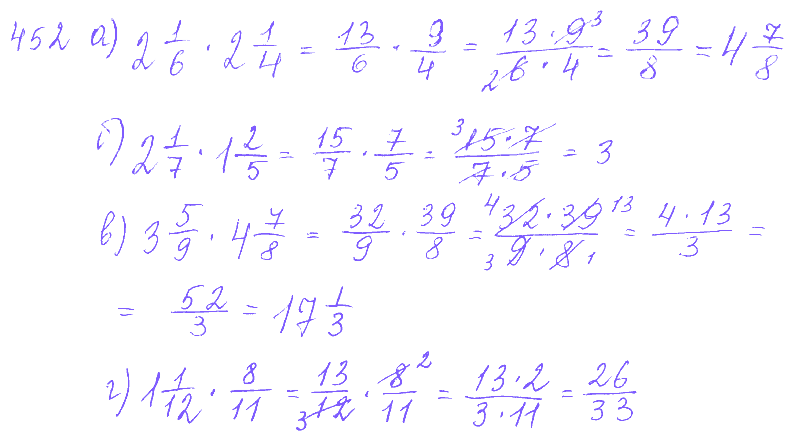 452 а) 2 1/6 · 2 1/4 = 13/6 · 9/4 = 13 · 9 3 / 2 6 · 4 = 39/8 = 4 7/8
б) 2 1/7 · 1 2/5 = 15/7 · 7/5 = 3 15 · 7 / 7 · 5 = 3
в) 3 5/9 · 4 7/8 = 32/9 · 39/8 = 4 32 · 39 13 / 3 9 · 8 1 = 4 · 13 / 3 =
= 52/3 = 17 1/3
г) 1 1/12 · 8/11 = 13 / 3 12 · 8 2 / 11 = 13 · 2 / 3 · 11 = 26/33